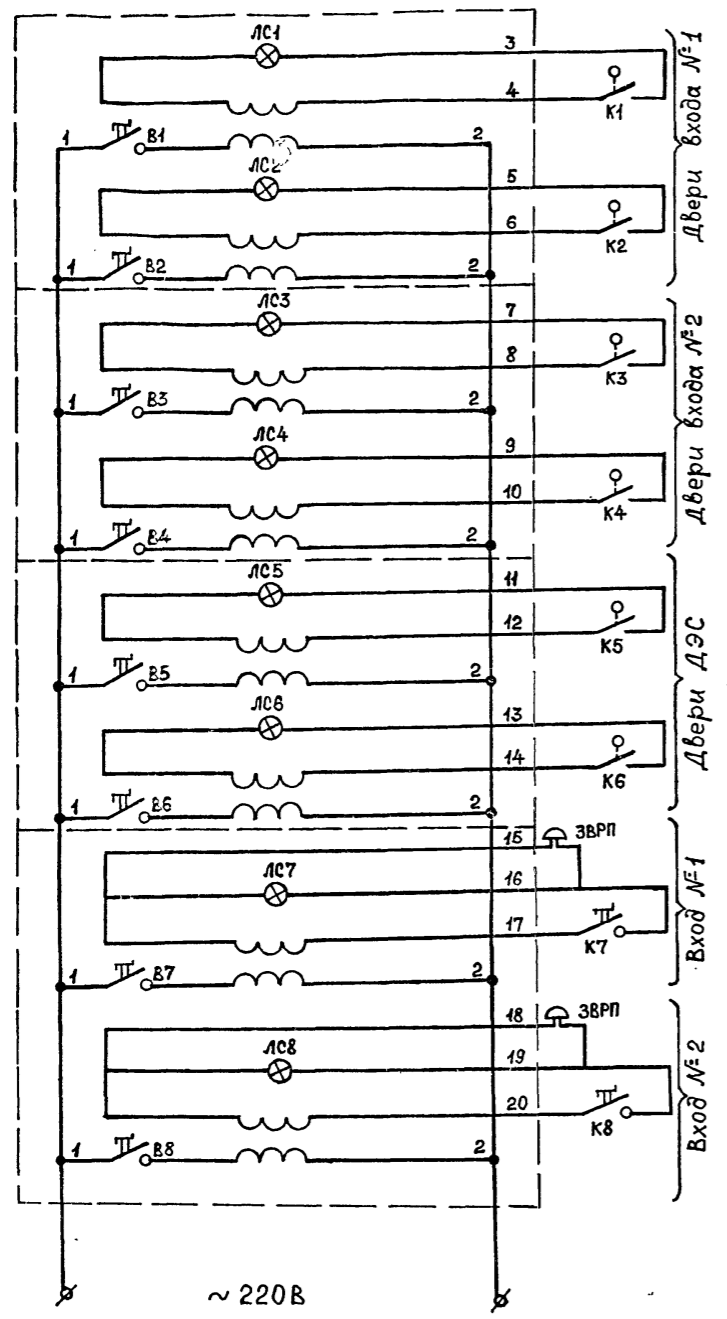 ЛС1
3
4
К1
1
В1
2
ЛС2
5
6
К2
1
В2
2
Двери входа №1
ЛС3
7
8
К3
1
В3
2
ЛС4
9
10
К4
1
В4
2
Двери входа №2
ЛС5
11
12
К5
1
В5
2
ЛС6
13
14
К6
1
В6
2
Двери ДЭС
15
ЗВРП
ЛС7
16
17
К7
1
В7
2
Вход №1
18
ЗВРП
ЛС8
19
20
К8
1
В8
2
Вход №2
~220В